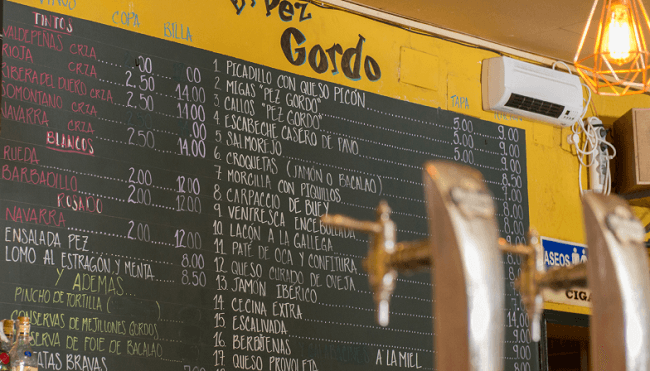 VINOS COPA BILLA
TINTOS
VALDEPEÑAS CRZA
RIOJA CRZA 2.50 14.00
RIBERA DEL DUERO CRZA 2.50 14.00
SOMONTANO CRZA
NAVARRA 2.50 14.00
BLANCOS
RUEDA 2.00 12.00
BARBADILLO 2.00 12.00
ROSADO
NAVARRA 2.00 12.00
ENSALADA PEZ 8.00
LOMO AL ESTRAGÓN Y MENTA 8.50
Y ADEMAS
PINCHO DE TORTILLA ( )
CONSERVAS DE MEJILLONES GORDOS
CONSERVA DE FOIE DE BACALAO
PATATAS BRAVAS
Pez
Gordo
TAPA
1 PICADILLO CON QUESO PICÓN 5.00 9.00
2 MEGAS "PEZ GORDO" 5.00 9.00
3 CALLOS "PEZ GORDO" 5.00 9.00
4 ESCABECHE CASERO DE PAVO
5 SALMOREJO
6 CROQUETAS (JAMÓN O BACALAO)
7 MORCILLA CON PIQUILLOS
8 CARPACCIO DE BUEY
9 VENTRESCA ENCEBOLLADA
10 LACÓN A LA GALLEGA
11 PATÉ DE OCA Y CONFITURA
12 QUESO CURADO DE OVEJA
13 JAMÓN IBÉRICO
14 CECINA EXTRA
15 ESCALIVADA
16 BERBIENAS
17 QUESO PROVOLETA A LA MIEL
ASEOS
CIGA